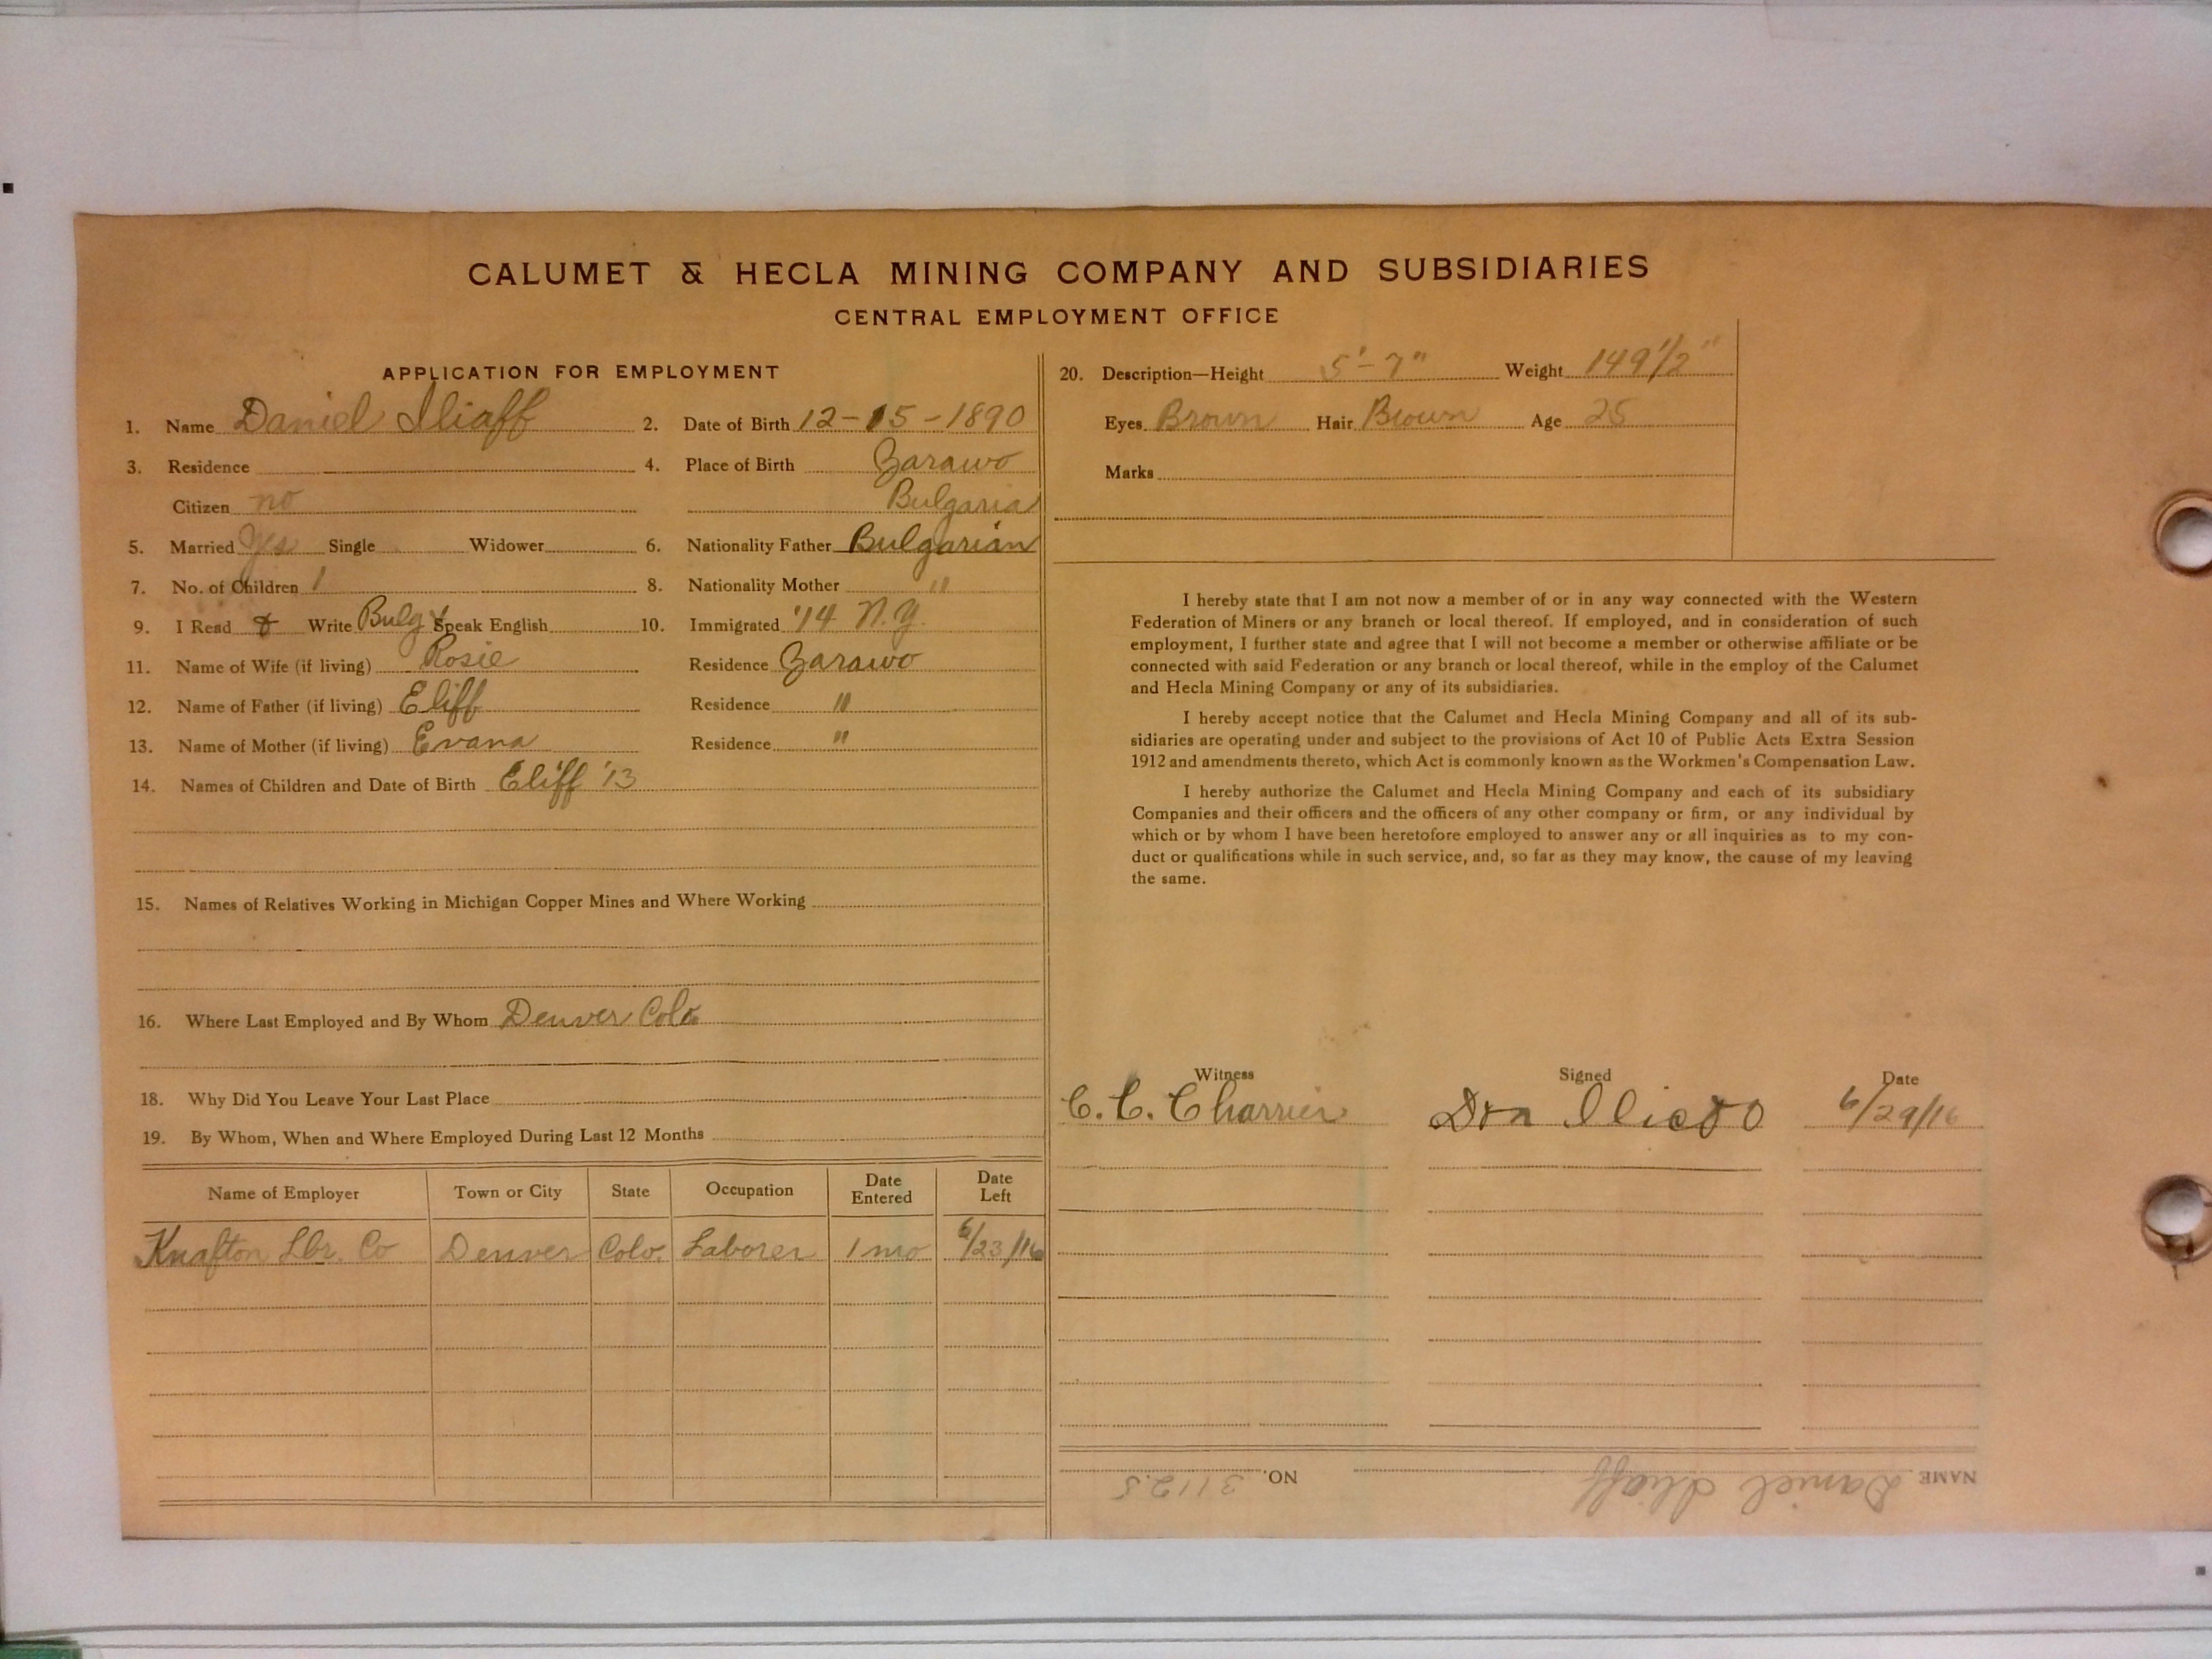 CALUMET & HECLA MINING COMPANY AND SUBSIDIARIES
CENTRAL EMPLOYMENT OFFICE
APPLICATION FOR EMPLOYMENT
1. Name Daniel Iliaff 2. Date of Birth 12-15-1890
3. Residence 4. Place of Birth Zarawo
Citizen no Bulgaria
5. Married Yes Single Widower 6. Nationality Father Bulgarian
7. No. of Children 1 8. Nationality Mother "
9. I Read & Write Bulg Speak English 10. Immigrated '14 N.Y.
11. Name of Wife (if living) Rosie Residence Zarawo
12. Name of Father (if living) Eliff Residence "
13. Name of Mother (if living) Evana Residence "
14. Names of Children and Date of Birth Eliff '13
15. Names of Relatives Working in Michigan Copper Mines and Where Working
16. Where Last Employed and By Whom Denver Colo.
18. Why Did You Leave Your Last Place
19. By Whom, When and Where Employed During Last 12 Months
Name of Employer Town or City State Occupation Date Entered Date Left
Knafton Lbr. Co Denver Colo. Laborer 1 mo 6/23/16
20. Description—Height 5'-7" Weight 149 1/2"
Eyes Brown Hair Brown Age 25
Marks
I hereby state that I am not now a member of or in any way connected with the Western
Federation of Miners or any branch or local thereof. If employed, and in consideration of such
employment, I further state and agree that I will not become a member or otherwise affiliate or be
connected with said Federation or any branch or local thereof, while in the employ of the Calumet
and Hecla Mining Company or any of its subsidiaries.
I hereby accept notice that the Calumet and Hecla Mining Company and all of its sub-
sidiaries are operating under and subject to the provisions of Act 10 of Public Acts Extra Session
1912 and amendments thereto, which Act is commonly known as the Workmen's Compensation Law.
I hereby authorize the Calumet and Hecla Mining Company and each of its subsidiary
Companies and their officers and the officers of any other company or firm, or any individual by
which or by whom I have been heretofore employed to answer any or all inquiries as to my con-
duct or qualifications while in such service, and, so far as they may know, the cause of my leaving
the same.
Witness Signed Date
C. C. Charrier 6/29/16
NAME Daniel Iliaff NO. 31125